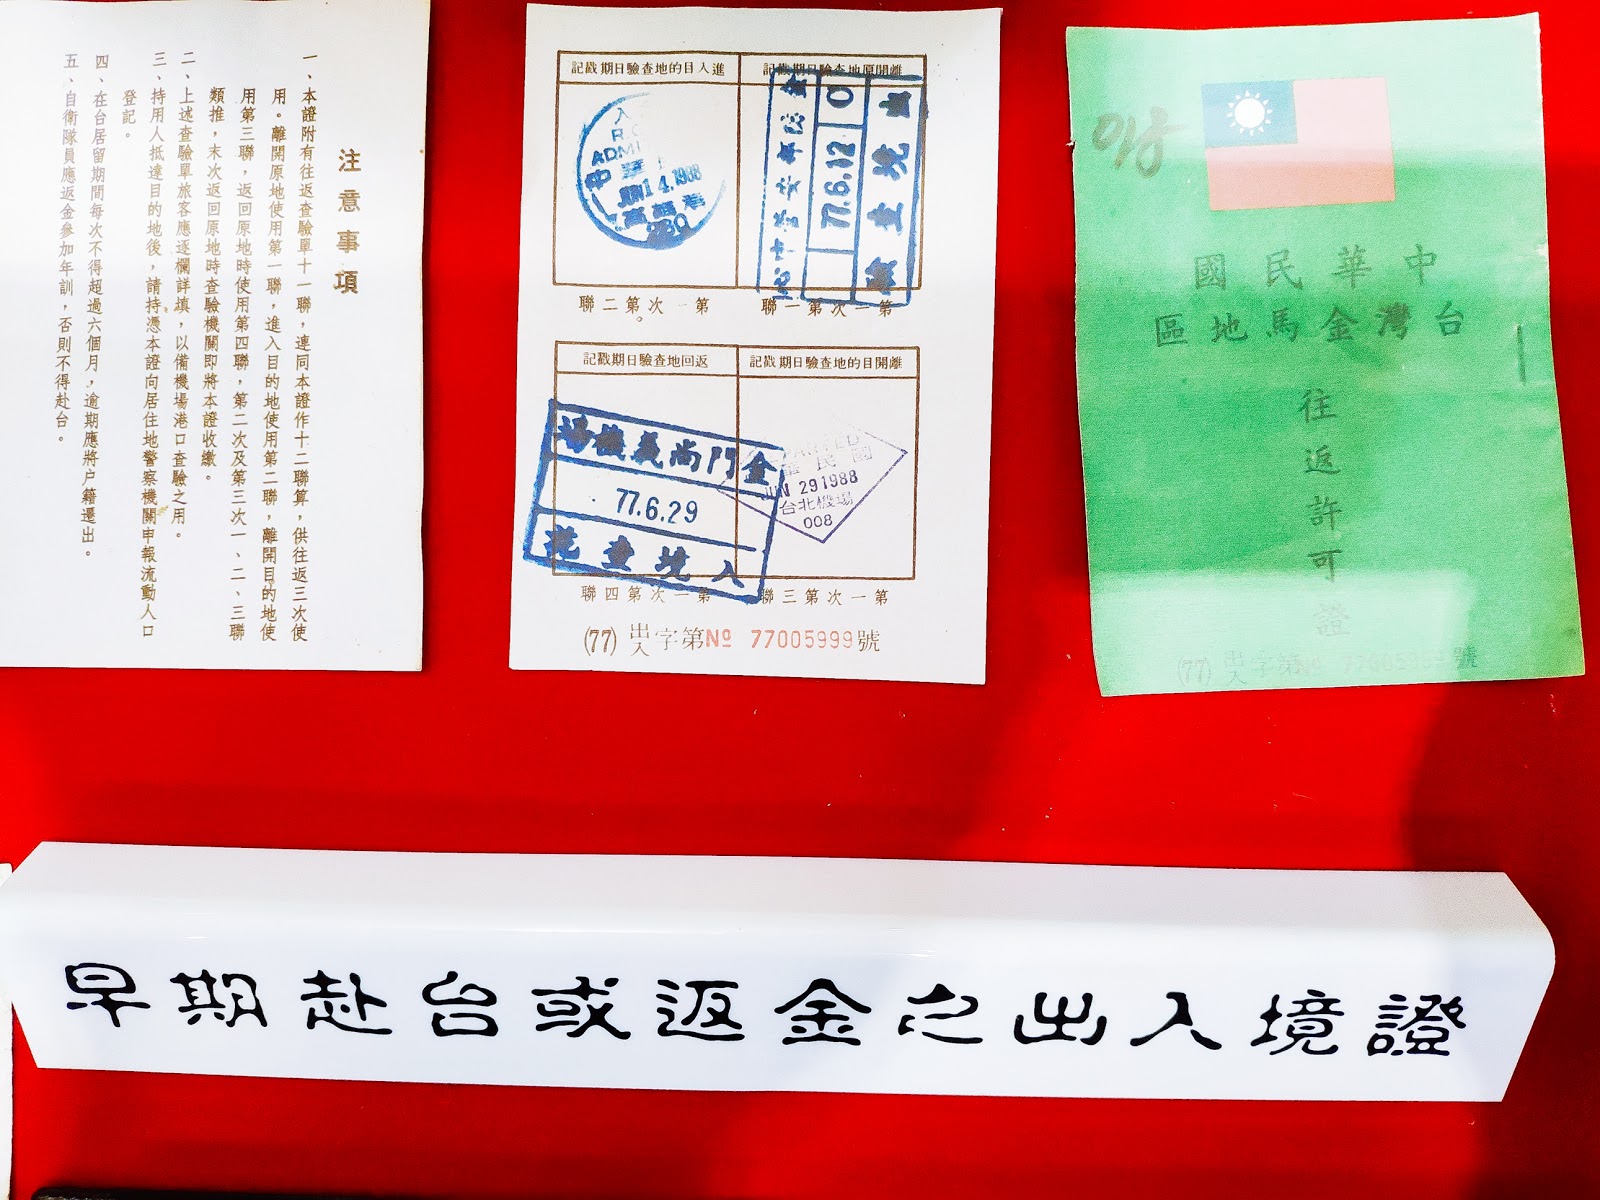 注意事項
一、本證附有往返查驗單十一聯，連同本證作十二聯算，供往返三次使
用。離開原地使用第一聯，進入目的地使用第二聯，離開目的地使
用第三聯，返回原地時使用第四聯，第二次及第三次一、二、三聯
類推，末次返回原地時查驗機關即將本證收繳。
二、上述查驗單旅客應逐欄詳填，以備機場港口查驗之用。
三、持用人抵達目的地後，請持憑本證向居住地警察機關申報流動人口
登記。
四、在台居留期間每次不得超過六個月，逾期應將户籍遷出。
五、自衛隊員應返金參加年訓，否則不得赴台。
離開原地查驗日期戳記
進入目的地查驗日期戳記
77.6.12
14.1988
第一次第一聯
第一次第二聯
離開目的地查驗日期戳記
返回地查驗日期戳記
JUN 29 1988
台北機場
008
金門尚義機場
77.6.29
入境查驗
第一次第三聯
第一次第四聯
(77)出入字第№ 77005999號
中華民國
台灣金馬地區
往返許可證
(77)出入字第№ 77005999號
早期赴台或返金之出入境證